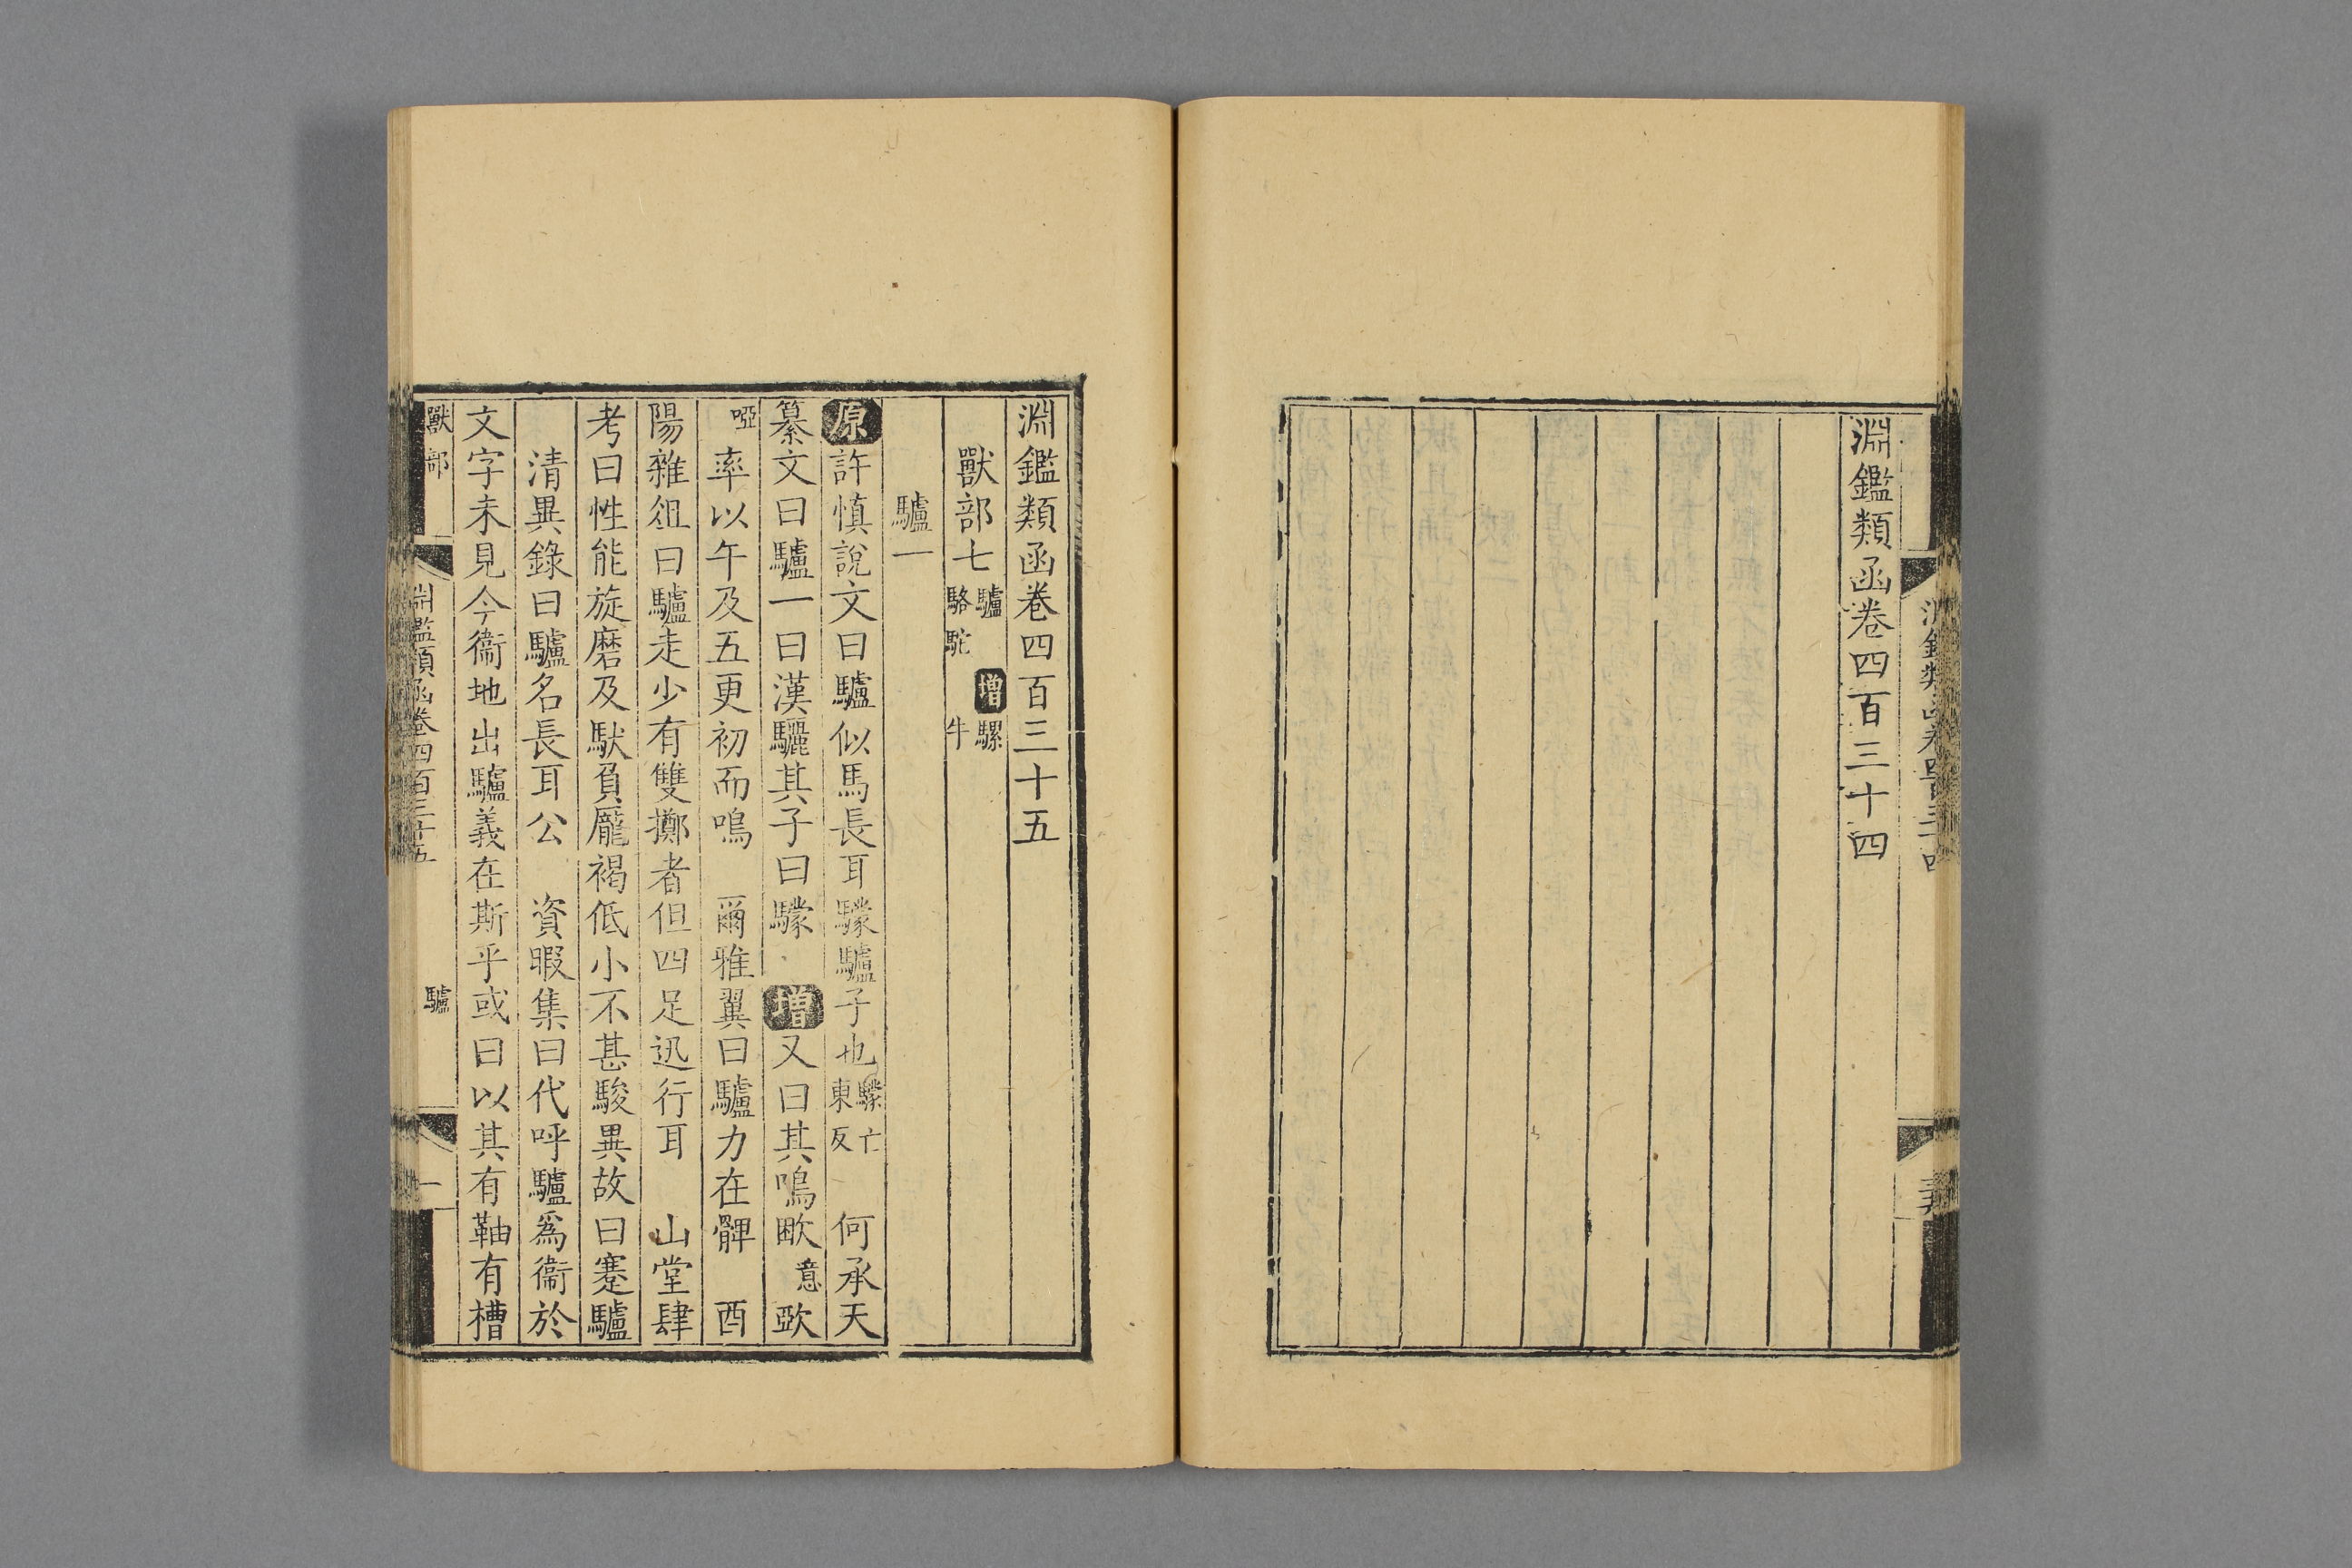 淵鑑類函卷四百三十四
淵鑑類函卷四百三十五
獸部七 驢 增騾 駱駝 牛
驢一
原許慎說文曰驢似馬長耳驡驢子也 亡東反 何承天
纂文曰驢一曰漢驪其子曰驡 增又曰其鳴㕱 意歐
啞 率以午及五更初而鳴 爾雅翼曰驢力在髀 酉
陽雜俎曰驢走少有雙擲者但四足迅行耳 山堂肆
考曰性能旋磨及馱負龎褐低小不甚駿異故曰蹇驢
清異錄曰驢名長耳公 資暇集曰代呼驢爲衞於
文字未見今衞地出驢義在斯乎或曰以其有軸有槽
獸部 淵鑑類函卷四百三十五 驢 一